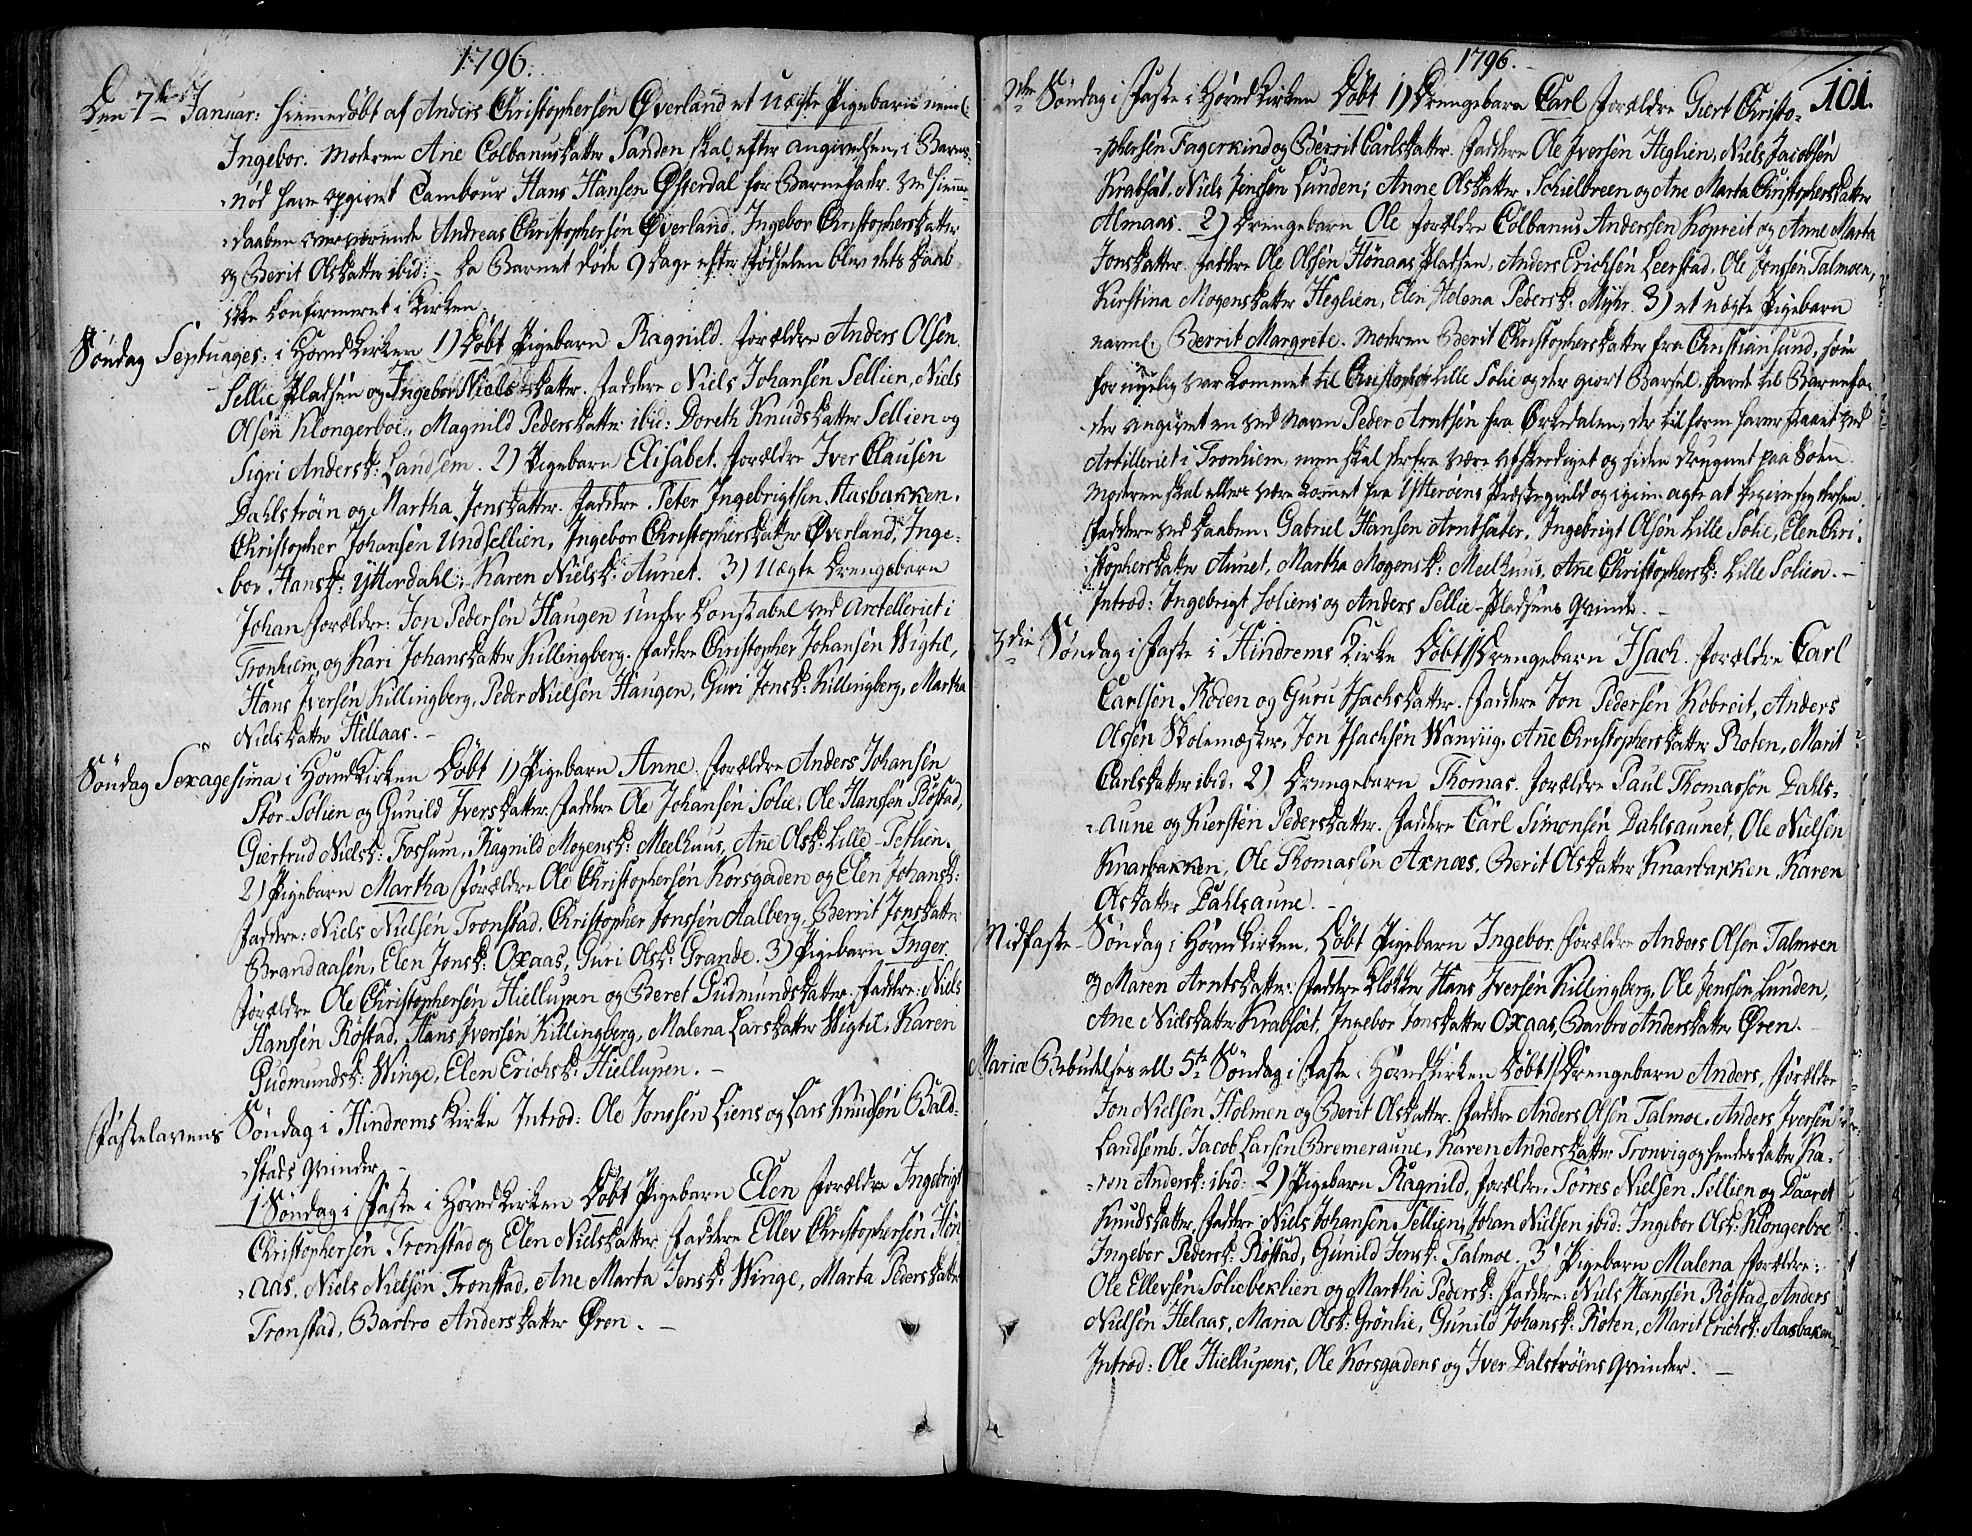 1796.
Den 7de Januar: hiemmedøbt af Anders Christophersen Øverland et uægte Pigebarn neml:
Ingebor. Moderen Ane Colbanusdatter Sanden skal efter angivelsen, i Barns-
nød have opgivet Tambour Hans Hansen Østerdal for Barnefader. Ved hiemme-
daaben overværende Andreas Christophersen Øverland, Ingebor Christophersdatter
og Berit Olsdatter ibid: - Da Barnet døde 9 dage efter Fødselen blev dets daab
ikke confirmeret i Kirken
Søndag Septuages: i HovedKirken 1) Døbt Pigebarn Ragnild. Forældre Anders Olsen
Sellie Pladsen og Ingebor Nielsdatter. Faddere Niels Johansen Sellien, Niels
Olsen Klongerboe, Magnild Pedersdatter ibid: Doreth Knudsdatter Sellien og
Sigri Andersd: Landsem. 2) Pigebarn Elisabet. Forældre Iver Clausen
Dahlstrøm og Martha Jonsdatter. Faddere Peter Ingebrigtsen Aasbakken,
Christopher Johansen Undsellien, Ingebor Christophersdatter Øverland, Inge-
bor Hansd: Ytterdahl, Karen Nielsd: Aunet. 3) Uægte Drengebarn
Johan Forældre: Jon Pedersen Haugen Under Constabel ved Artelleriet i
Tronhiem og Kari Johansdatter Killingberg. Faddere Christopher Johansen Wigtil,
Hans Iversen Killingberg, Peder Nielsen Haugen, Guri Jonsd: Killingberg, Martha
Nielsdatter Hellaas. -
Søndag Sexagesima i HovedKirken Døbt 1) Pigebarn Anne Forældre Anders Johansen
Stor-Solien og Gunild Iversdatter. Faddere Ole Johansen Solie, Ole Hanssen Røstad,
Giertrud Nielsd: Fossum, Ragnild Mogensd: Meelhuus, Ane Olsd: Lille-Tethien.
2) Pigebarn Martha Forældre Ole Christophersen Korsgaden og Elen Johansd:
Faddere: Niels Nielsen Tronstad, Christopher Jonssen Aalberg, Berrit Jonsdatter
Brandaasen, Elen Jonsd: Oxaas, Guri Olsd: Grande. 3) Pigebarn Inger
Forældre Ole Christophersen Hiellupen og Beret Gudmundsdatter. Faddere: Niels
Hanssen Røstad, Hans Iversen Killingberg, Malena Larsdatter Wigtil, Karen
Gudmundsd: Winge, Elen Erichsd: Hiellupen. -
Fastelavens Søndag i Hindrems Kirke Introd: Ole Jonssen Liens og Lars Knudsen Bald-
stads Qvinder. -
1 Søndag i Faste i HovedKirken Døbt Pigebarn Elen Forældre Ingebrigt
Christophersen Tronstad og Elen Nielsdatter Faddere Ellev Christophersen Høn
aas, Niels Nielsen Tronstad, Ane Marta Jensd: Winge, Marta Pedersdatter
Tronstad, Barbro Andersdatter Øren. -
1796.
101.
2den Søndag i Faste i HovedKirken Døbt 1) Drengebarn Carl Forældre Giert Christo-
phersen Fagerkind og Berrit Carlsdatter. Faddere Ole Iversen Heglien, Niels Jacobsen
Krabsæt, Niels Jenssen Lunden; Anne Olsdatter Schielbreen og Ane Marta Christophersdatter
Almaas. 2) Drengebarn Ole Forældre Colbanus Anderssen Kopreit og Anne Marta
Jonsdatter. Faddere Ole Olsen Hønaas Pladsen, Anders Erichsen Leerstad, Ole Jonssen Talmoen,
Kirstina Mogensdatter Heglien, Elen Helena Pedersd: Myhr. 3) et uægte Pigebarn
navnl. Berrit Margrete. Modren Berit Christophersdatter fra Christiansund, som
for nyelig var kommet til Christopher Lille Solie og der giort Barsel. havde til Barnefa-
der angivet en ved Navn Peder Arntsen fra Orkedalen, der tilforn haver staaet ved
Artilleriet i Tronhiem, men skal derfra være afskediget og siden druknet paa Søen
Moderen skal ellers være komet fra Ytterøens Præstegield og igien agte at begive sig dersen.
Faddere ved Daaben: Gabriel Hansen Arntsæter, Ingebrigt Olsen Lille Solie, Elen Chri-
stophersdatter Aunet, Martha Mogensd: Meelhuus, Ane Christophersd: Lille Solien. -
Introd: Ingebrigt Soliens og Anders Sellie-Pladsens Qvinde. -
3die Søndag i Faste i Hindrems Kirke Døbt 1) Drengebarn Isach. Forældre Carl
Carlsen Roden og Guru Isachsdatter. Faddere Jon Pedersen Kobreit, Anders
Olsen Skolemester, Jon Isachsen Wanvig, Ane Christophersdatter Roten, Marit
Carlsdatter ibid: 2) Drengebarn Thomas. Forældre Paul Thomassøn Dahls-
aune og Kiersten Pedersdatter. Faddere Carl Simonsen Dahlsaunet, Ole Nielsen
Knarbakken, Ole Thomasen Axnæs, Berit Olsdatter Knarbakken, Karen
Olsdatter Dahlsaune. -
Midfaste-Søndag i HovedKirken, Døbt Pigebarn Ingebor. Forældre Anders Olsen Talmoen
og Maren Arntsdatter. Faddere Klokker Hans Iversen Killingberg, Ole Jenssen Lunden,
Ane Nielsdatter Krabsæt, Ingebor Jonsdatter Oxaas, Barbro Andersdatter Øren. -
Mariæ Bebudelses all. 5te Søndag i Faste i HovedKirken Døbt 1) Drengebarn Anders, Forældre
Jon Nielsen Holmen og Berit Olsdatter. Faddere Anders Olsen Talmoe, Anders Iversen
Landsemb. Jacob Larsen Bremeraune, Karen Andersdatter Tronvig og hendes datter Ka-
ren Andersd: ibid: 2) Pigebarn Ragnild, Forældre Tørres Nielsen Sellien og Daaret
Knudsdatter, Faddere Niels Johansen Sellien, Johan Nielsen ibid: Ingebor Olsd: Klongerboe
Ingebor Pedersd: Røstad, Gunild Jensd: Talmoe. 3) Pigebarn Malena Forældre:
Ole Ellevsen Soliebeklien og Martha Pedersd: Faddere: Niels Hanssen Røstad, Anders
Nielsen Helaas, Maria Olsd: Grønlie, Gunild Johansd: Roten, Marit Erichsd: Aasbaken
Introd: Ole Hiellupens, Ole Korsgadens og Iver Dalstrøens Qvinder. -